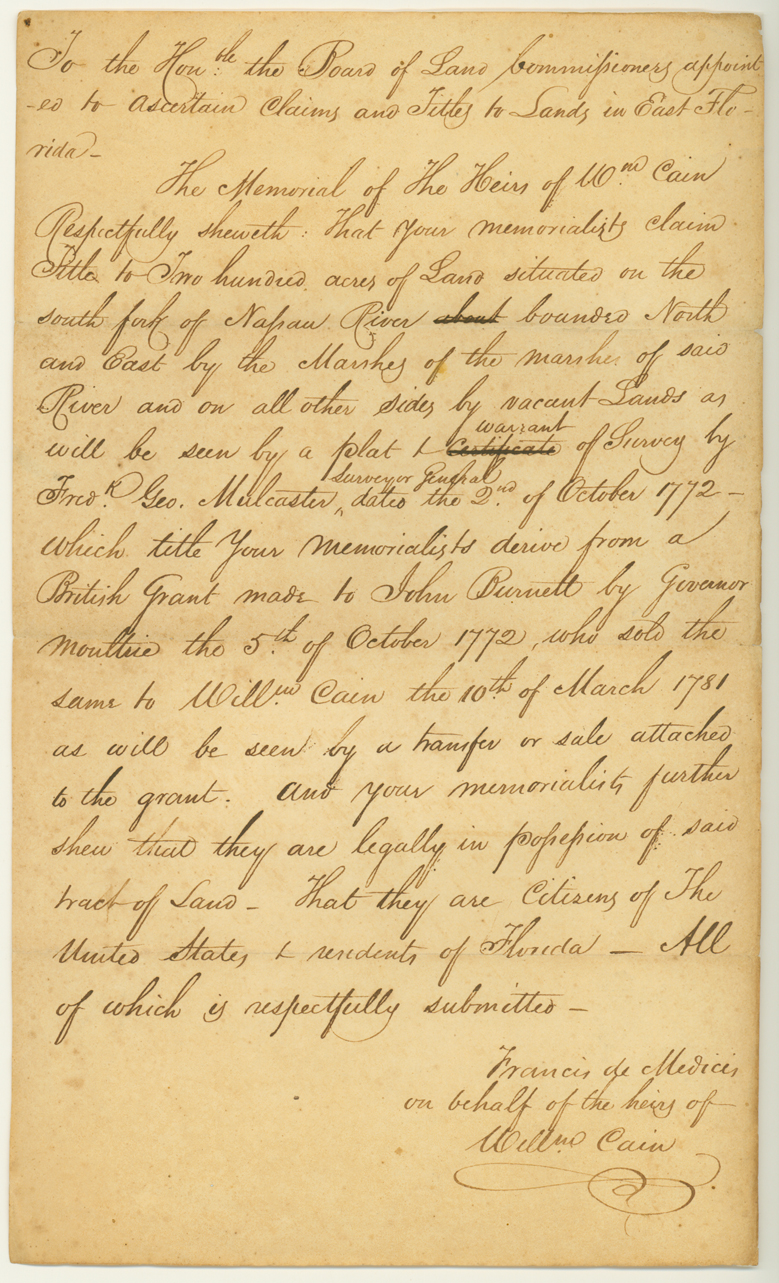 To the Hon:ble the Board of Land Commissioners appoint
-ed to ascertain Claims and Titles to Lands in East Flo-
rida-
The Memorial of The Heirs of Wm. Cain
Respectfully sheweth: That your memorialists claim
Title to Two hundred acres of Land situated on the
south fork of Nassau River about bounded North
and East by the Marshes of the marshes of said
River and on all other sides by vacant Lands as
warrant
will be seen by a plat & certificate of Survey by
Surveyor General
Fredk. Geo. Mulcaster, dated the 2nd. of October 1772-
which title Your memorialists derive from a
British Grant made to John Burnett by Governor
Moultrie the 5th. of October 1772, who sold the
same to Willm. Cain the 10th of March 1781
as will be seen by a transfer or sale attached
to the grant. And your memorialists further
shew that they are legally in possession of said
tract of Land - That they are Citizens of The
United States & residents of Florida - All
of which is respectfully submitted -
Francis de Medicis
on behalf of the heirs of
Willm. Cain